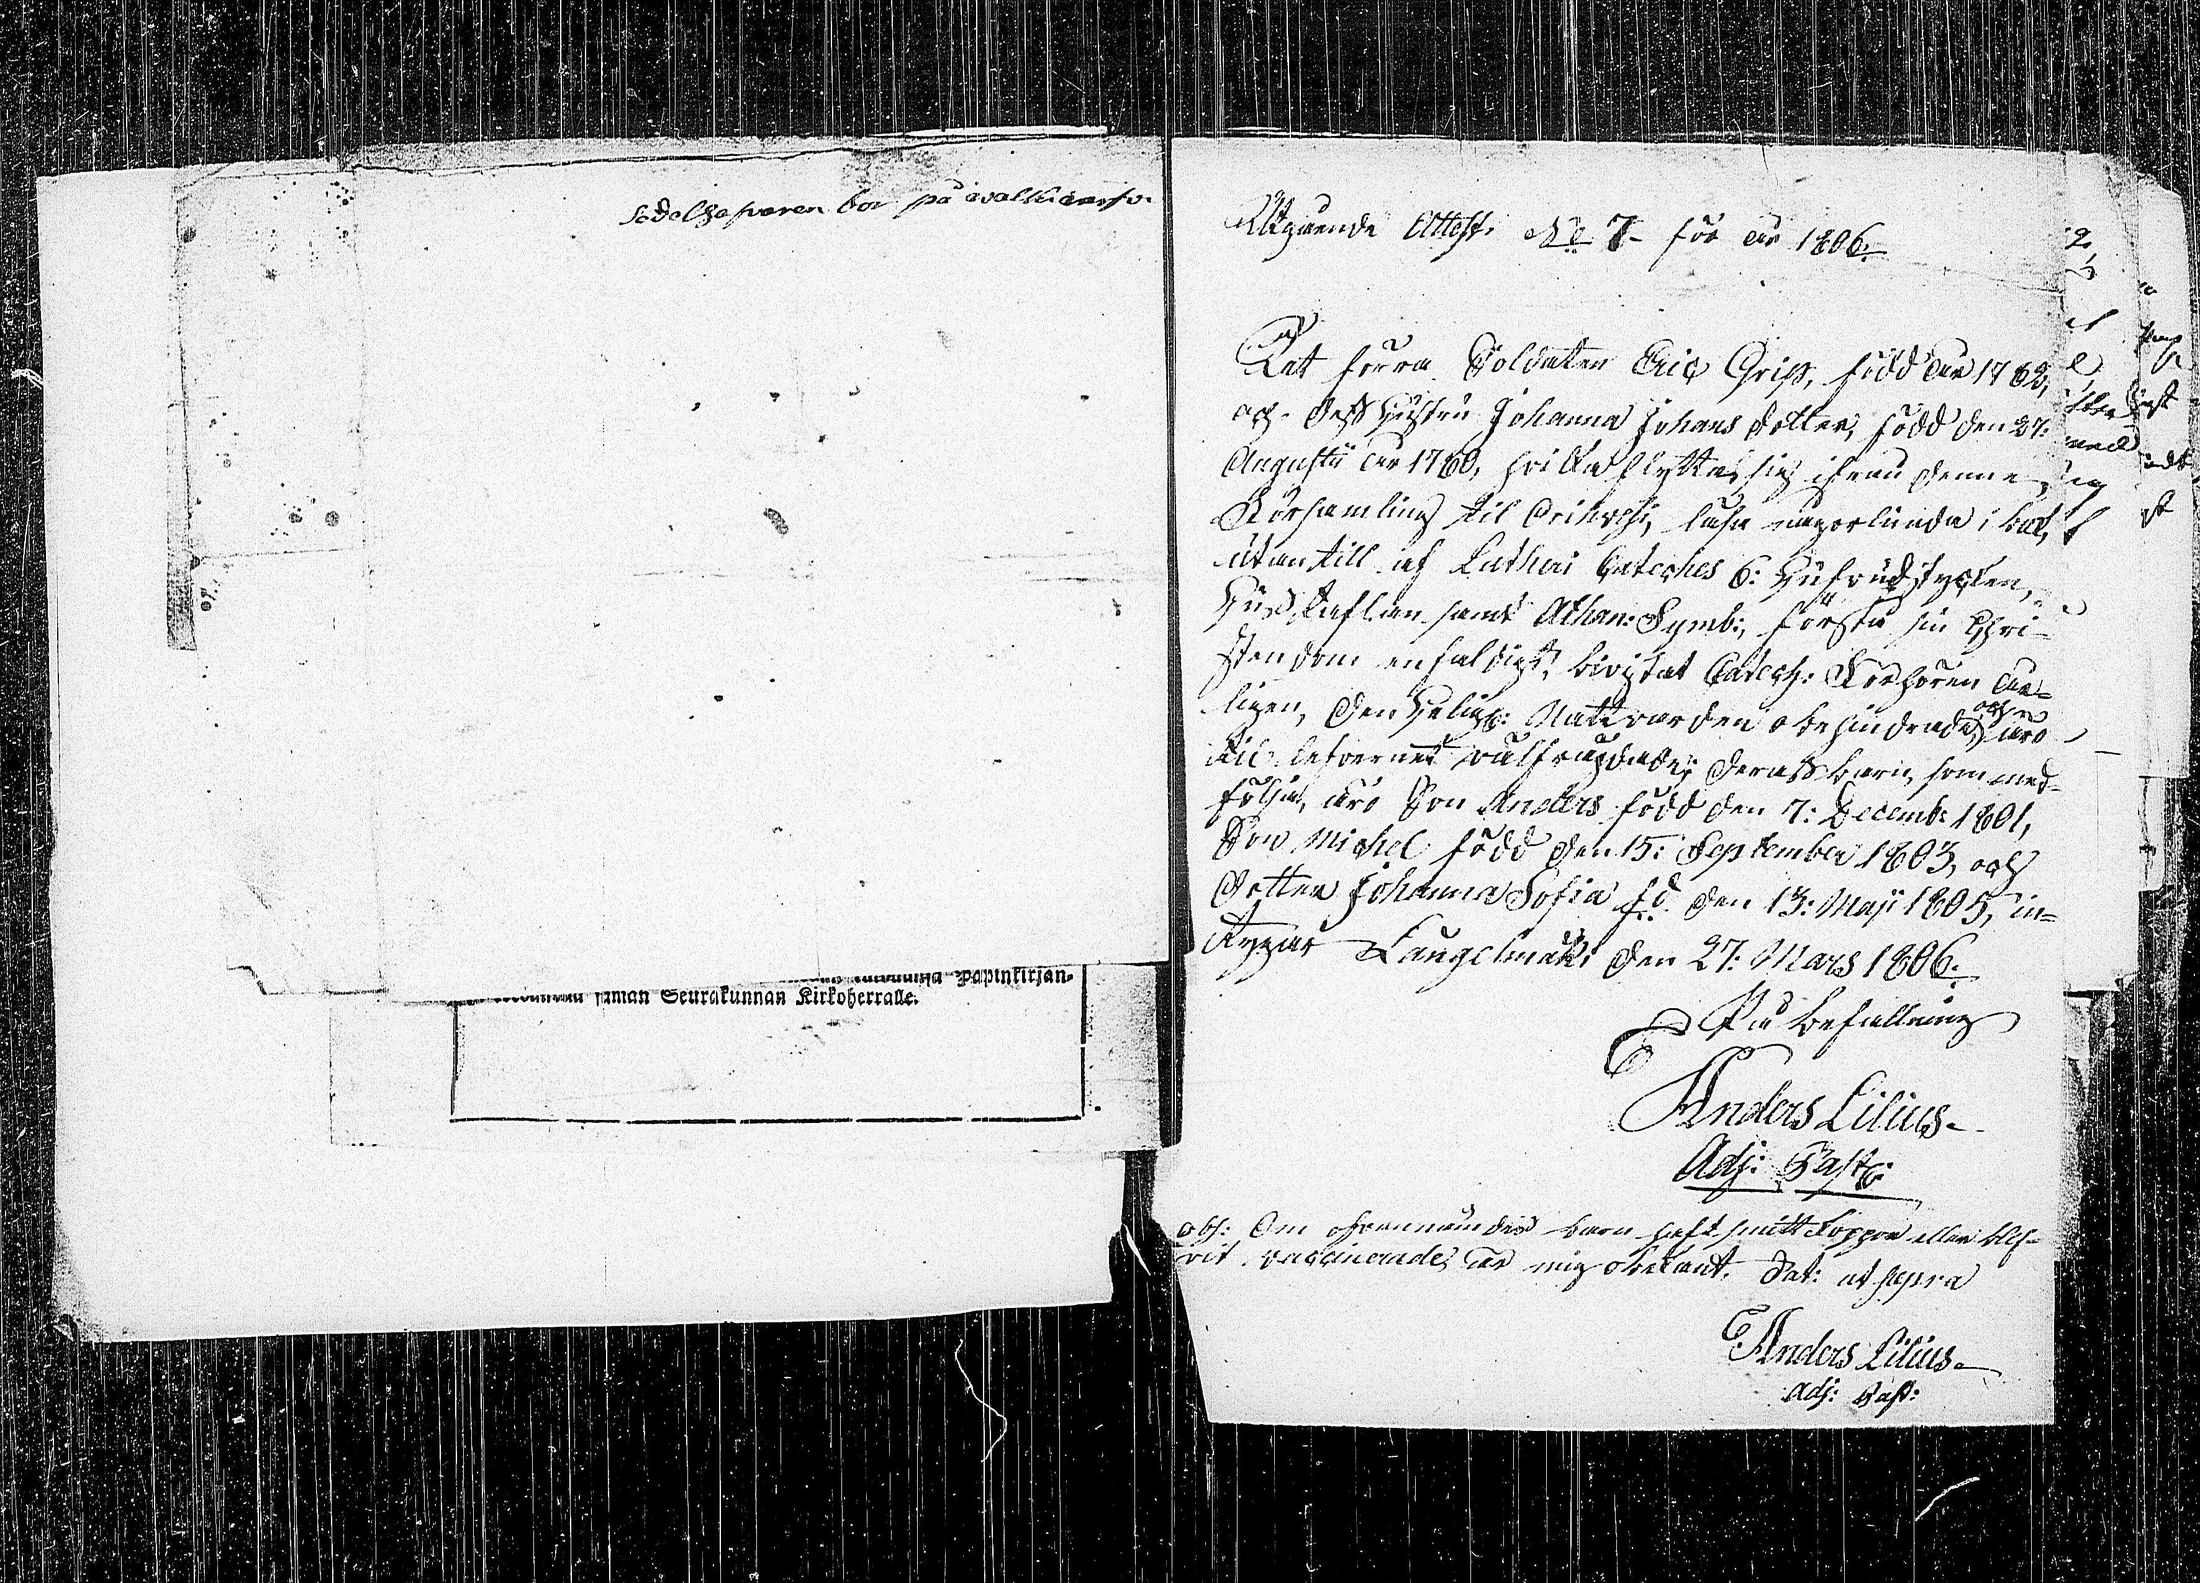 Sedelhafvaren bor på Walkiarfvi
Papinkirjan-
saman Seurakunnan Kirkoherralle.
Utgående Attest. No 7. för år 1806.
At förra Soldaten Eric Grip, född år 1762,
och dess Hustru Johanna Johans dotter, född den 27:
Augusti år 1760, hvilka flytta sig ifrån denne
Församling til Orihvesi, läsa någorlunda i bok,
utantill af Lutheri Cateches 6: Hufvudstycken,
Hustaflan samt Athan: Symb:, förstå sin Chri-
stendom enfaldigt, bivistat Catech: Förhören år-
ligen, den Helige: Nattvarden obehindrade, och äro
til lefvernet välfrägdade; deras barn, som med-
följa, äro Son Anders född den 7: Decemb: 1801,
Son Michel född den 15: September 1803, och
Dotter Johanna Sofia fd. den 13: Maji 1805, in-
tygar Längelmäki den 27: Mars 1806.
På befallning
Anders Lilius.
Adj: Past:
obs: Om ofvannämndes barn haft smittkoppor eller blif-
vit vaccinerade är mig obekant. Dat: ut supra
Anders Lilius.
Adj: Past: